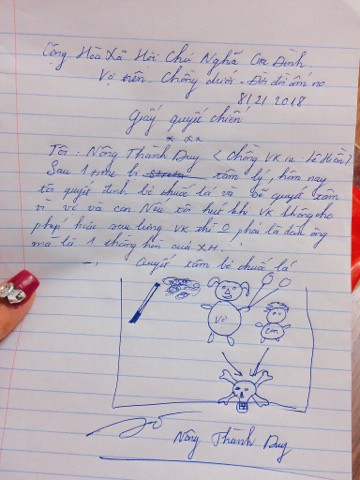 Cộng Hòa Xã Hội Chủ Nghĩa Gia Đình
Vợ trên. Chồng dưới - Đời đời ấm no
8/21 2018
Giấy quyết chiến
Tôi: Nông Thành Duy < Chồng VK
Sau 1 time bị tâm lý, hôm nay
tôi quyết định bỏ thuốc lá và sẽ quyết tâm
vì vk và con Nếu tôi hút khi vk không cho
phép hoặc sau lưng vk thì 0 phải là đàn ông
mà là 1 thằng hèn của XH.
Quyết tâm bỏ thuốc lá
Vợ
Con
Nông Thành Duy